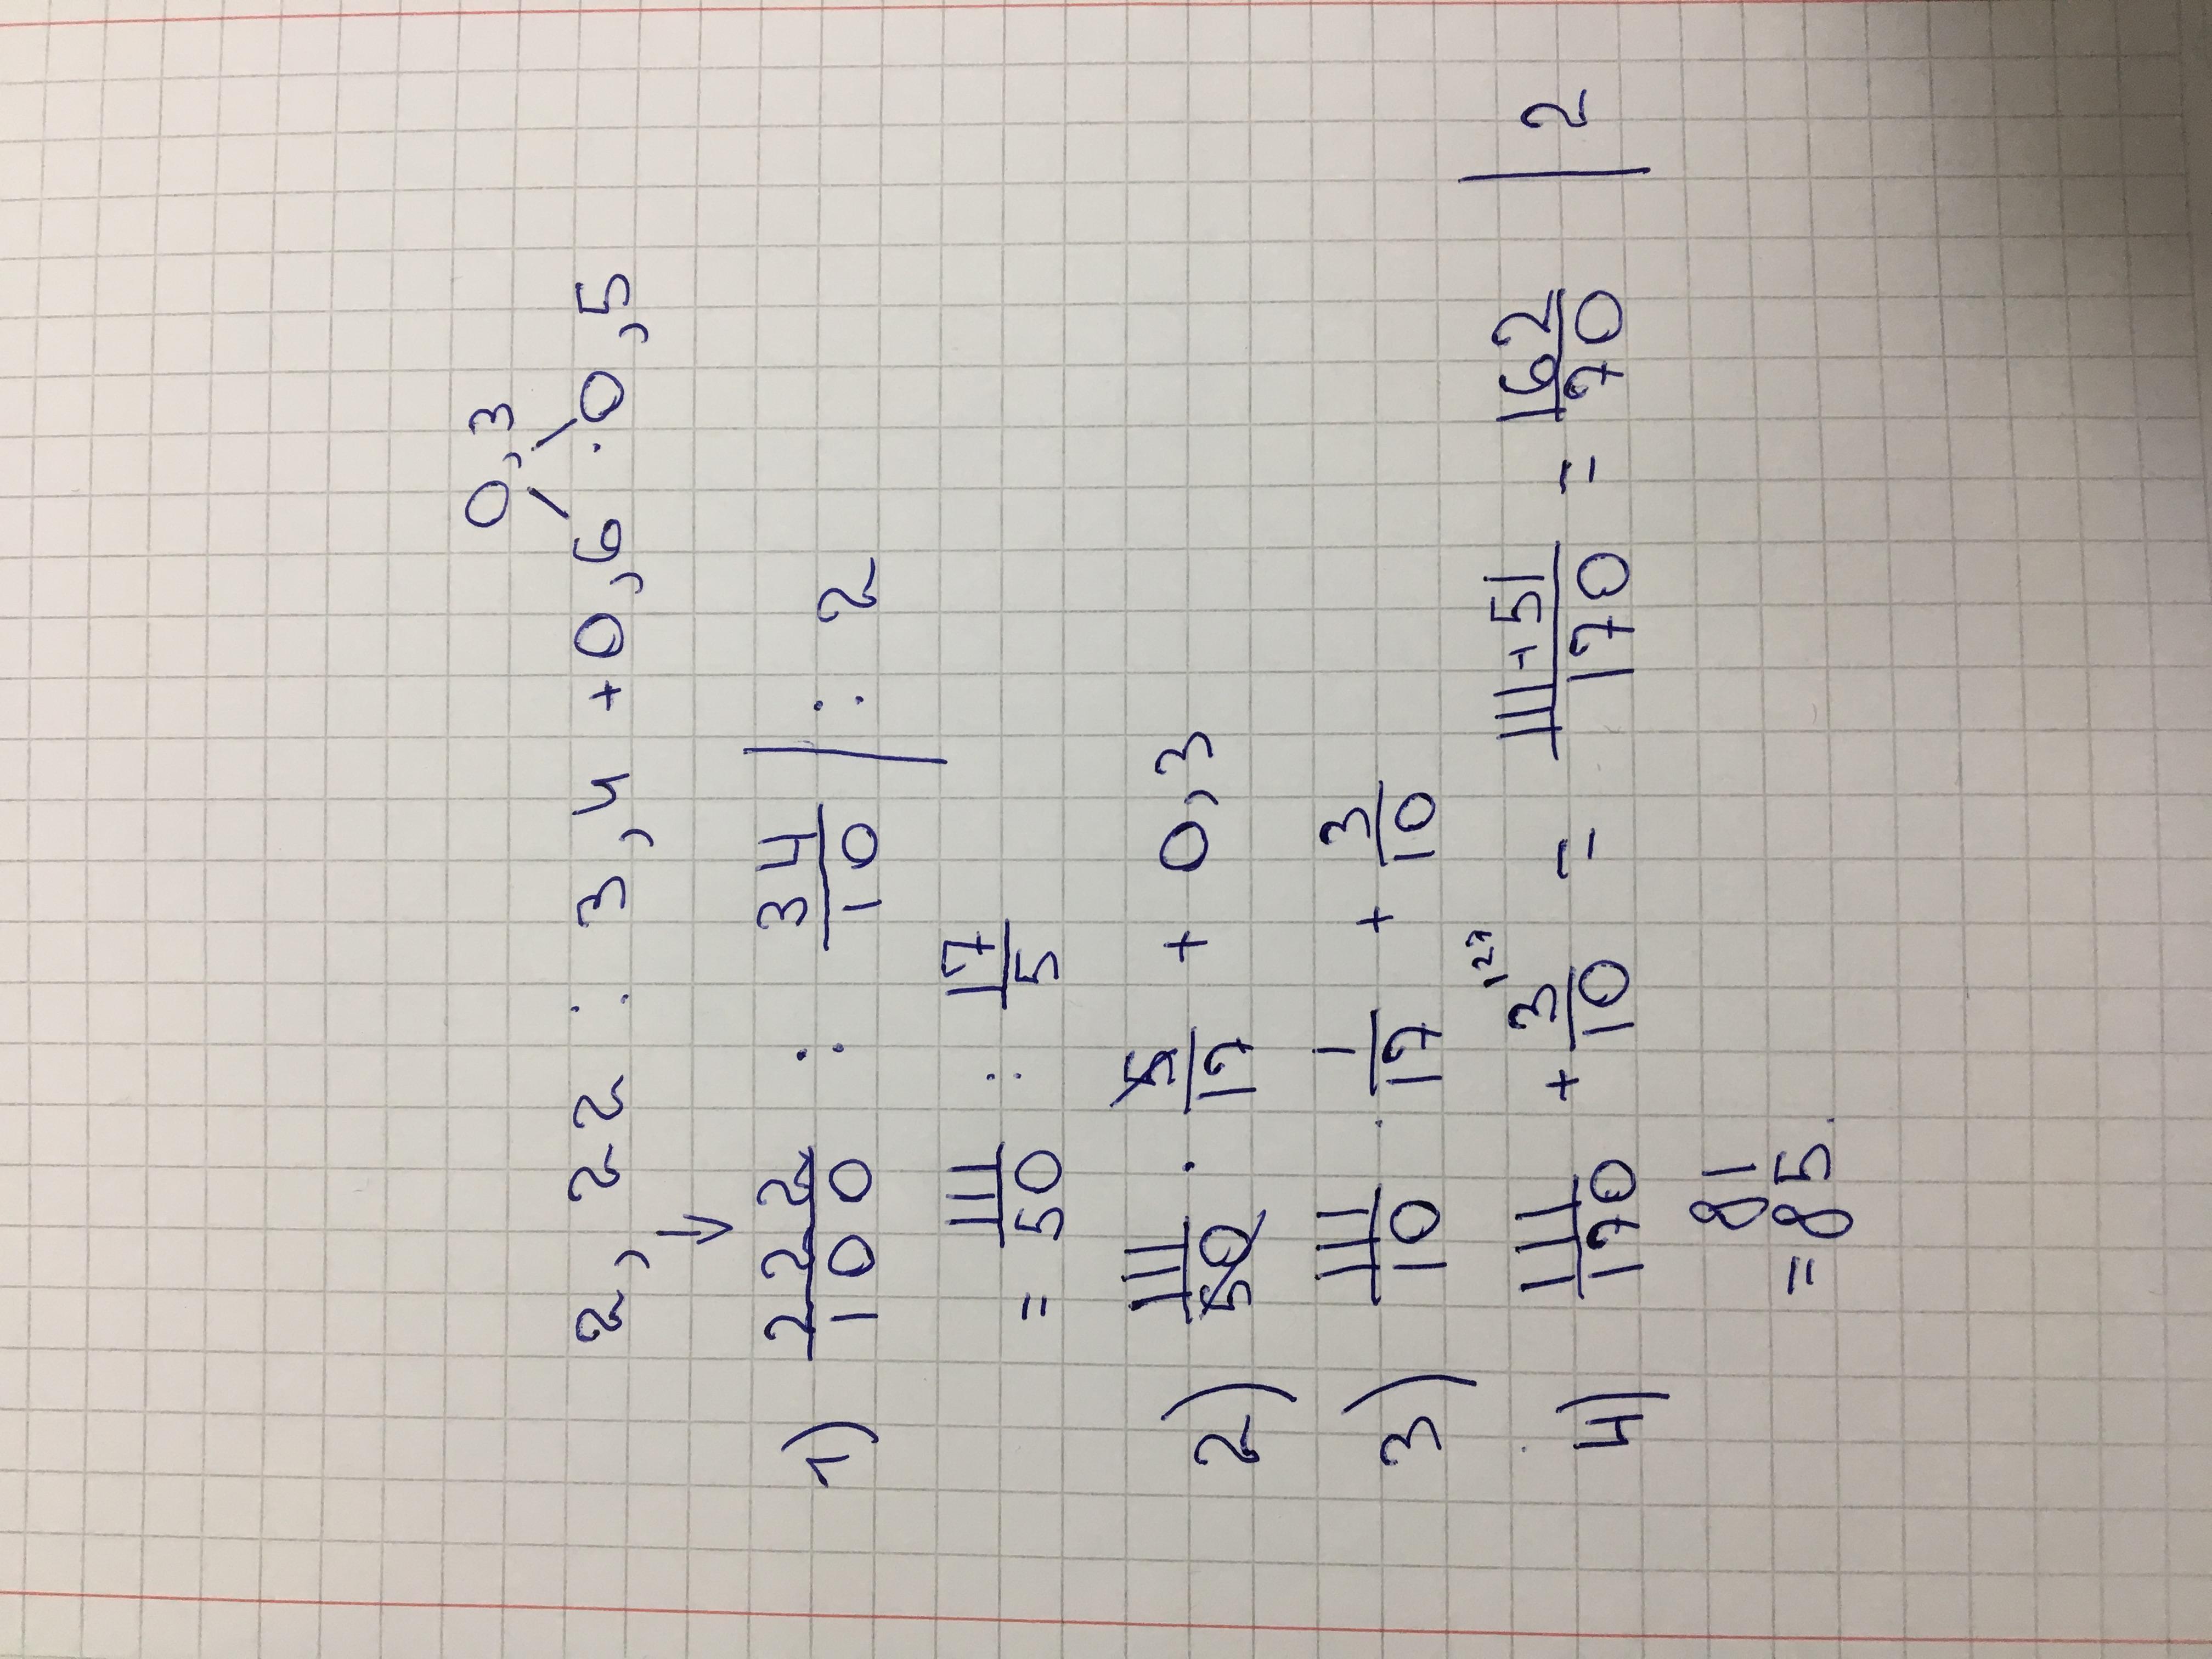 0,3
2,22 : 3,4 + 0,6 · 0,5
↓
1) 222/100 : 34/10 | : 2
= 111/50 : 17/5
2) 111/50 · 5/17 + 0,3
3) 111/10 · 1/17 + 3/10
4) 111/170 + 3/10 = 111+51/170 = 162/70 | 2
= 81/85